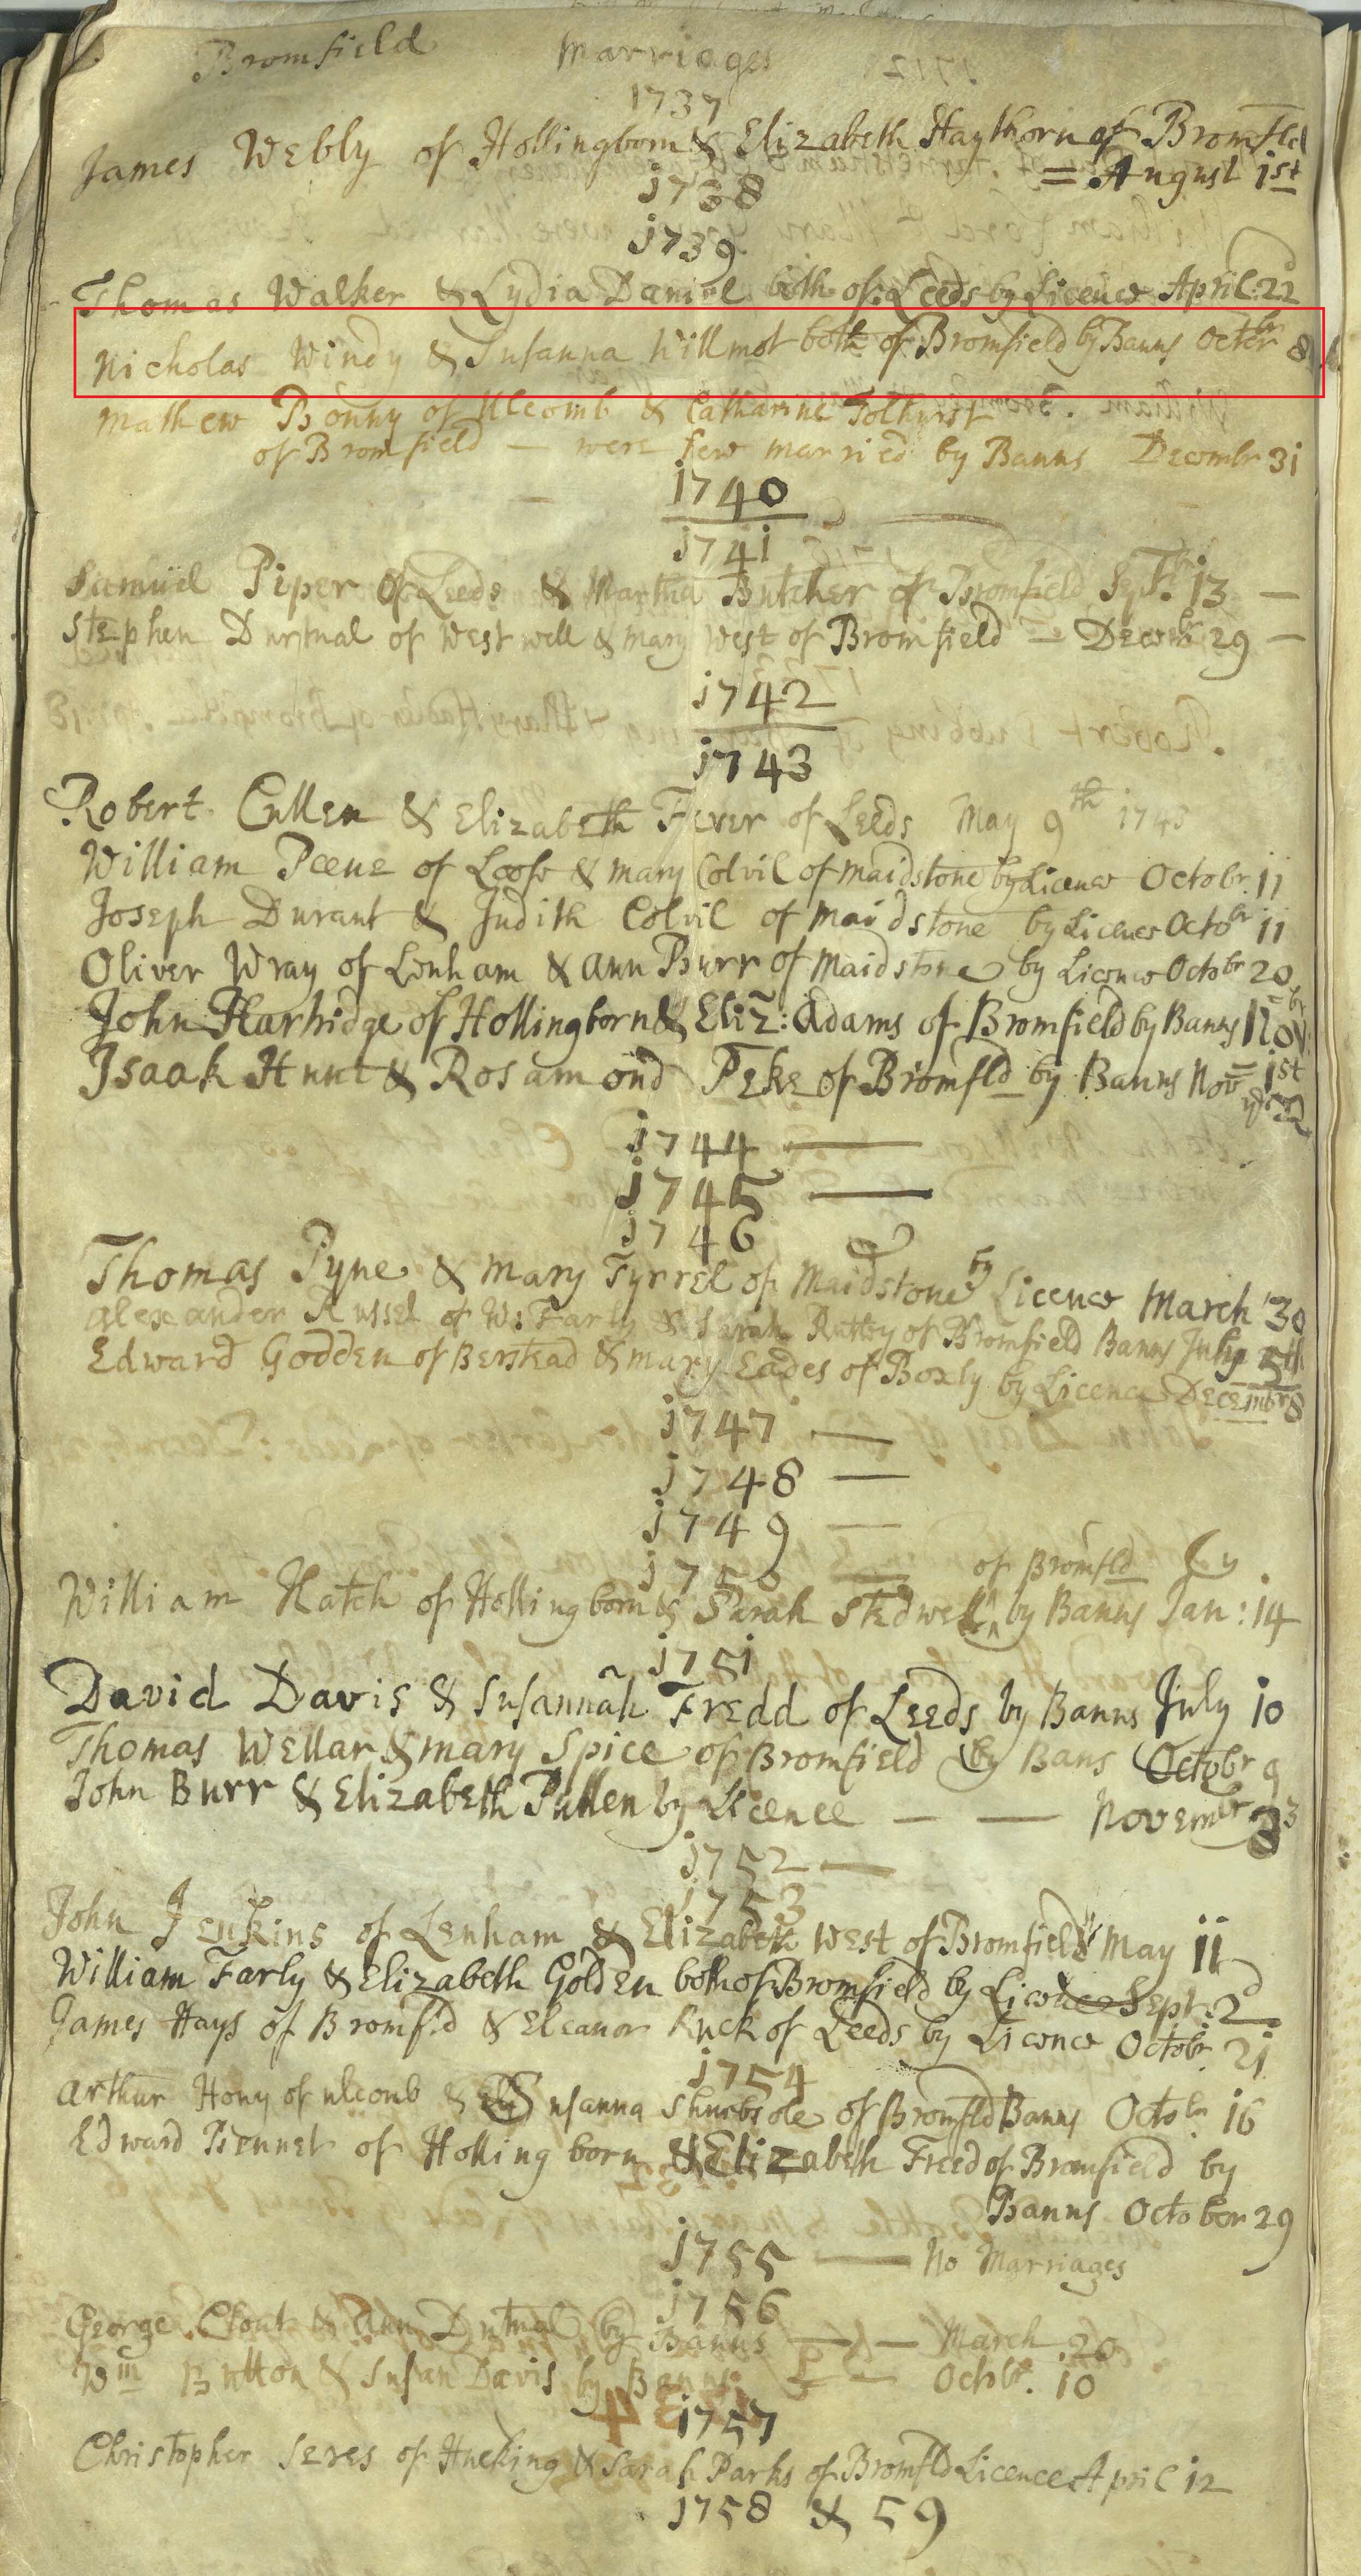 Bromfield Marriages
1737
James Webly of Hollingborn & Elizabeth Haythorn of Bromfld
= August 1st
1738
1739
Thomas Walker & Lydia Daniel both of Leeds by Licence April 22
Nicholas Windy & Susanna Willmot both of Bromfield by Banns Octbr 8
Mathew Bonny of Ulcomb & Catharine Tolhurst
of Bromfield — were married by Banns Decembr 31
1740
1741
Samuel Piper of Leeds & Martha Butcher of Bromfield Sepr 13 —
Stephen Durtnal of Westwell & Mary West of Bromfield — Decembr 29 —
1742
1743
Robert Cullen & Elizabeth of Leeds May 9th 1743
William Peene of Loose & Mary Colvil of Maidstone by Licence Octobr 11
Joseph Durant & Judith Colvil of Maidstone by Licence Octobr 11
Oliver Wray of Lenham & Ann Burr of Maidstone by Licence Octobr 20
John Harbidge of Hollingborn & Eliz: Adams of Bromfield by Banns Nov
= 1st
Isaak Hunt & Rosamond Peke of Bromfld by Banns Nov ye 22
1744 —
1745 —
1746
Thomas Pyne & Mary Tyrrel of Maidstone by Licence March 30
Alexander Russel of W: Farly & Sarah of Bromfield Banns July 5th
Edward Godden of Berstead & Mary Eades of Boxly by Licence Decembr 8
1747 —
1748 —
1749 —
1750 — of Bromfld
William Hatch of Hollingborn & Sarah Stedwell ^ by Banns Jan: 14
1751
David Davis & Susannah Fredd of Leeds by Banns July 10
Thomas Wellar & Mary Spice of Bromfield by Bans Octobr 9
John Burr & Elizabeth Pullen by Licence — — Novembr 3
1752 —
1753
John Jenkins of Lenham & Elizabeth West of Bromfield May 11
William Farly & Elizabeth Golden both of Bromfield by Licence Sept. 2d
James Hays of Bromfld & Eleanor Ruck of Leeds by Licence Octobr 21
1754
Arthur Hony of Ulcomb & Susanna Shubsole of Bromfld Banns Octobr 16
Edward Bennet of Hollingborn & Elizabeth Freed of Bromfield by
Banns October 29
1755 — No Marriages
1756
George Clout & Ann Dutnal by Banns — — March 20
Wm Button & Susan Davis by Banns — Octobr. 10
1757
Christopher Seres of Hucking & Sarah Parks of Bromfld Licence April 12
1758 & 59